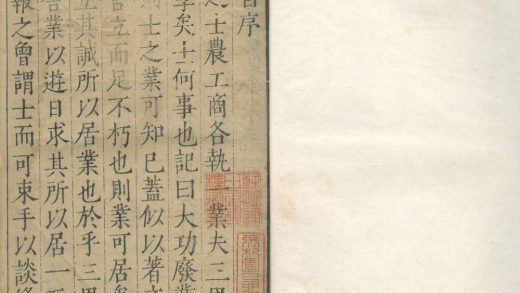 序
士農工商各執一業夫三
矣士何事也記曰大功廢業
士之業可知已蓋似以著
言立而足不朽也則業可居
其誠所以居業也於乎三
業以遊日求其所以居一
報之曾謂士而可束手以談